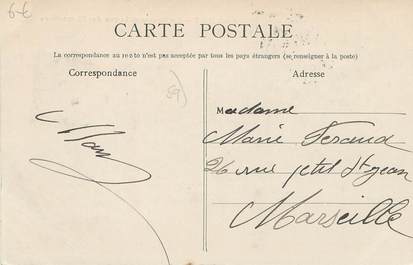 6-€
CARTE POSTALE
La correspondance au recto n'est pas acceptée par tous les pays étrangers (se renseigner à la poste)
Correspondance
Adresse
Madame
Marie Feraud
26 rue petit St Jean
Marseille